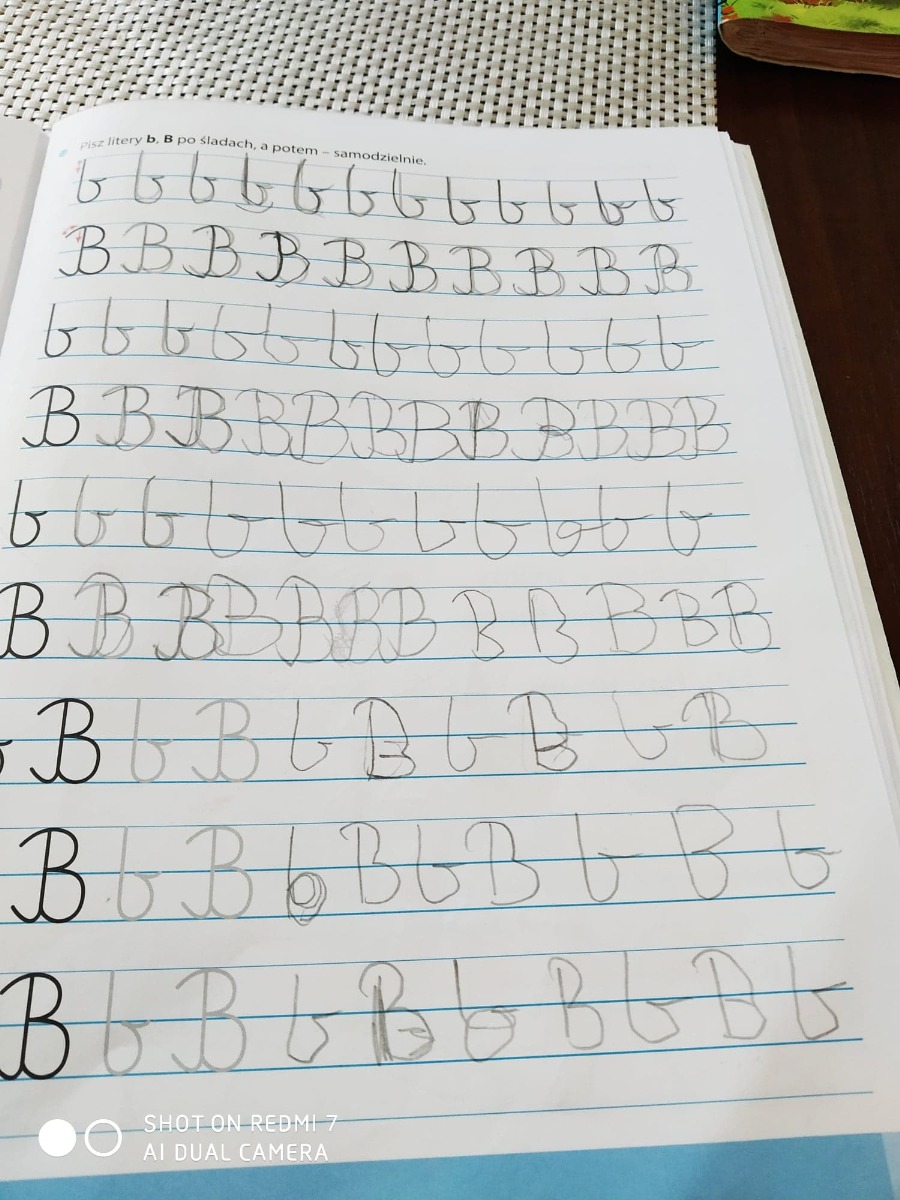 Pisz litery b, B po śladach, a potem – samodzielnie.
b b b b b b b b b b b b
B B B B B B B B B B
b b b b b b b b b b b b
B B B B B B B B B B B B
b b b b b b b b b b b
B B B B B B B B B B B B
B b B b B b B b B
B b B b B b B b B b
B b B b B b B b B b
SHOT ON REDMI 7
AI DUAL CAMERA